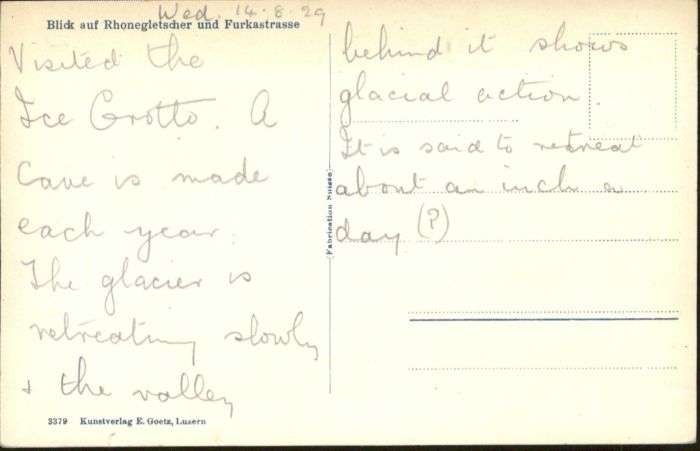 Wed. 14.8.29
Blick auf Rhonegletscher und Furkastrasse
Visited the
Ice Grotto. A
Cave is made
each year.
The glacier is
retreating slowly
& the valley
behind it shows
glacial action.
It is said to retreat
about an inch a
day (?)
Fabrication Suisse
3379 Kunstverlag E. Goetz, Luzern